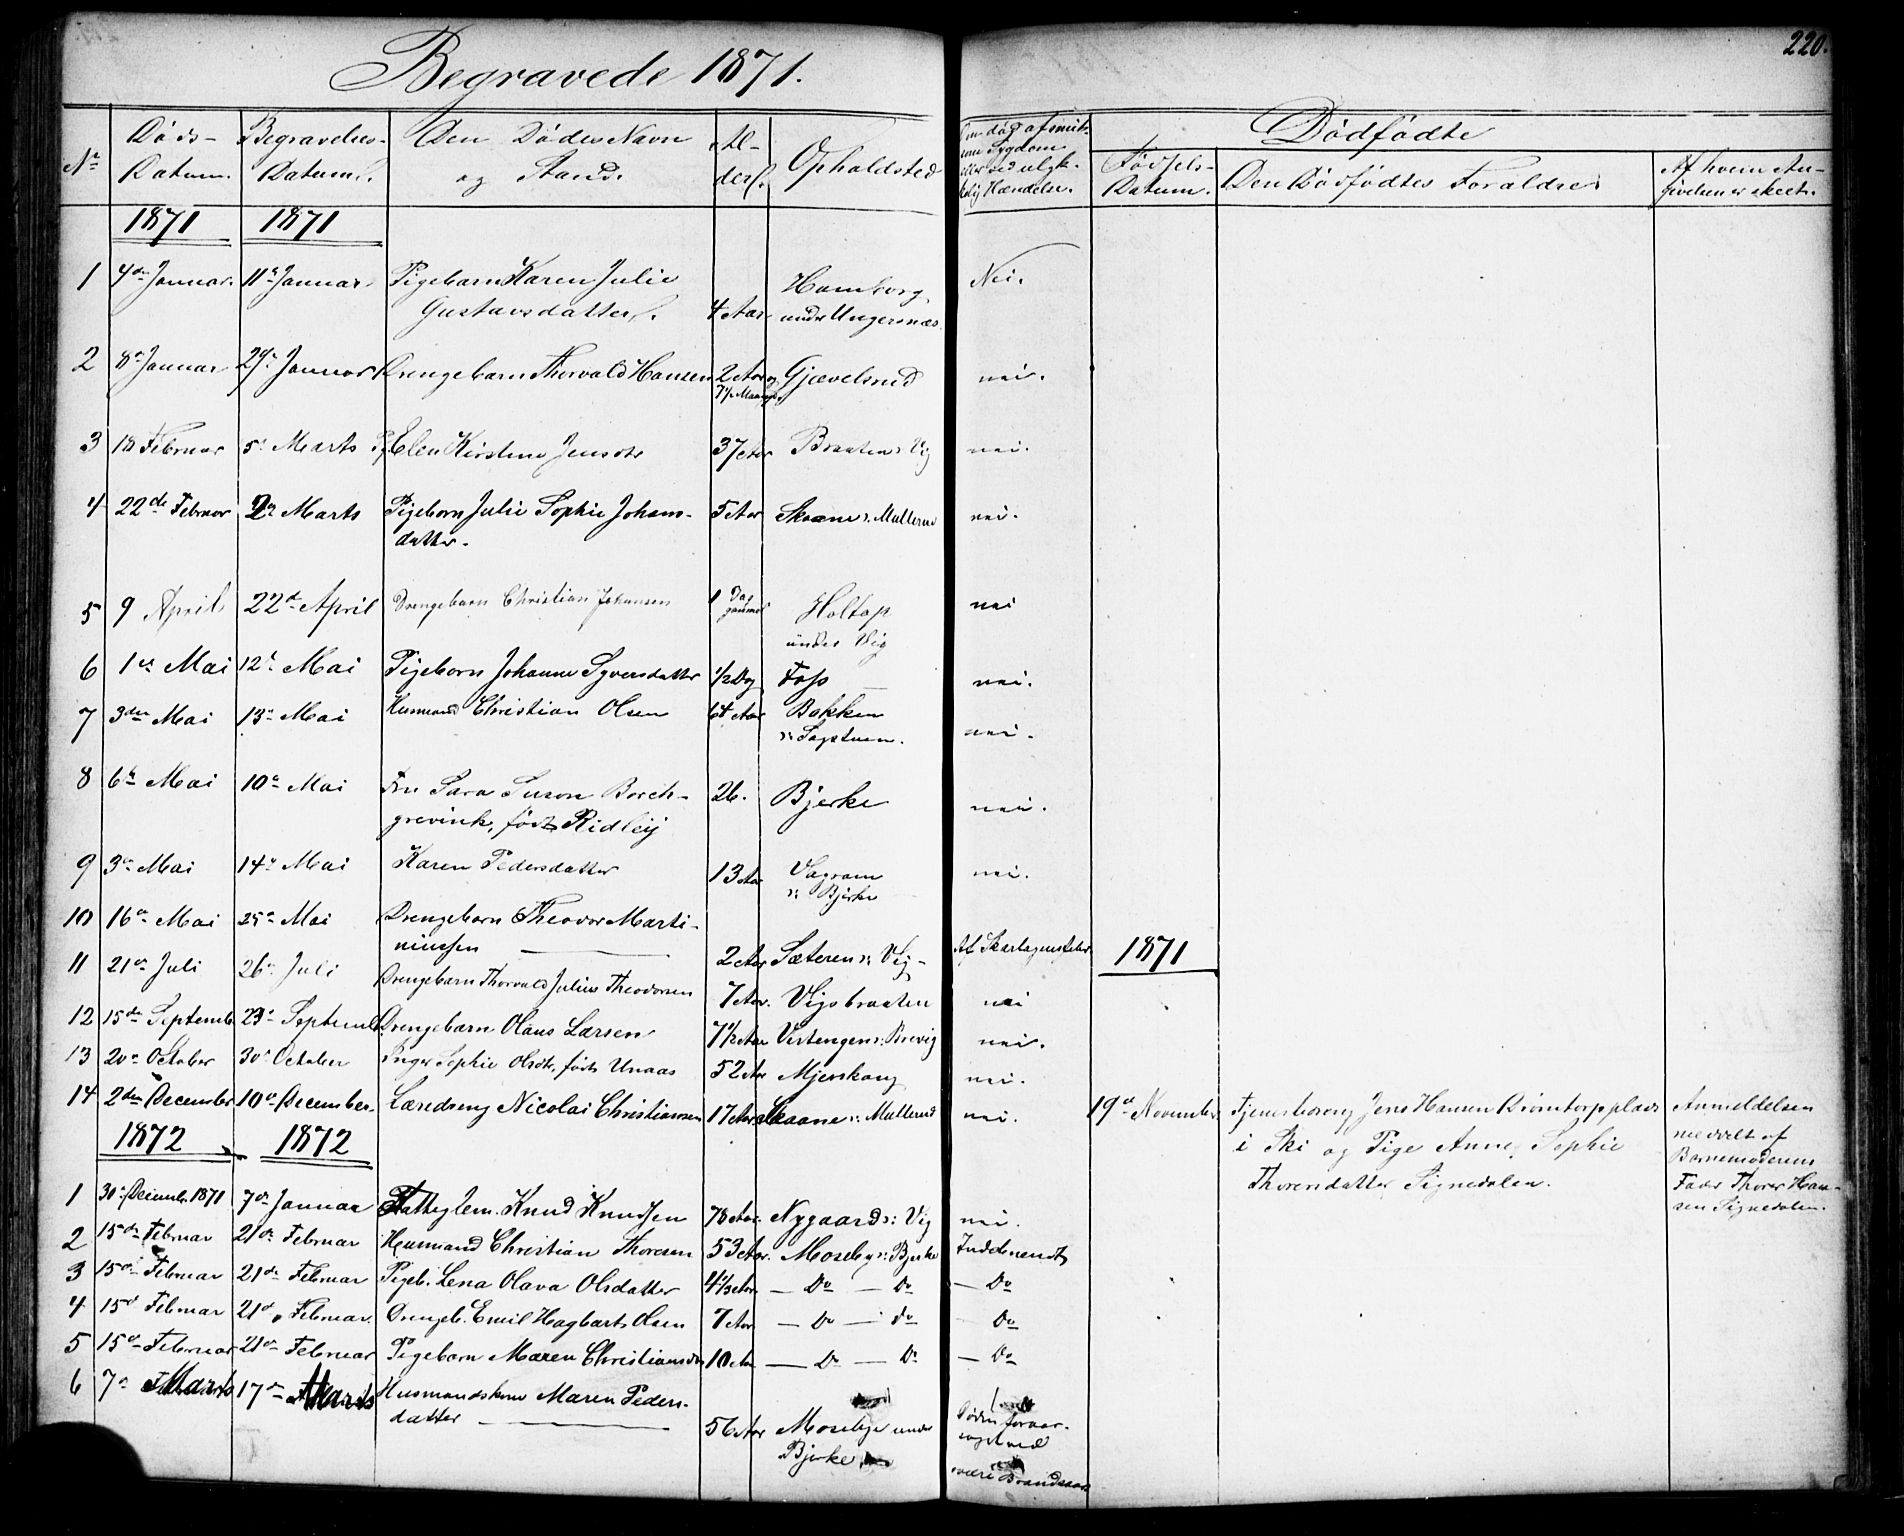 220.
Begravede 1871.
Nr
Døds-
Datum.
Begravelses-
Datum.
Den Dødes Navn
og Stand.
Al-
der.
Opholdsted
Om død af smit-
som Sygdom
eller ved ulyk-
kelig Hændelse.
Dødfødte
Fødsels-
Datum.
Den Dødfødtes Forældre
Af hvem An-
givelsen er skeet.
1871 1871
1 4de Januar. 11te Januar Pigebarn Karen Julie
Gustavsdatter. 4 Aar Hamborg
under Ungersnæs Nei.
2 8de Januar 29de Januar Drengebarn Thorvald Hansen 2 Aar og
7½ Maaned. Gjævelsrud nei.
3 18 Februar 5te Marts Pg. Elen Kirstine Jensdtr 37 Aar Braaten u. Vig nei.
4 22de Februar Marts Pigebarn Julie Sophie Johans-
datter. 5 Aar Skaane u. Mullerud nei.
5 9 April 22de April Drengebarn Christian Johansen 1 Dag
gammel Holtop
under Vig nei
6 1ste Mai 12te Mai Pigebarn Johanne Syversdatter ½ Dag Foss nei.
7 3die Mai 13de Mai Husmand Christian Olsen 64 Aar Bakken
u: Sagstuen. nei.
8 6te Mai 10de Mai Fru Sara Susan Borch-
grevink, født Ridley 26. Bjerke nei.
9 3die Mai 14de Mai Karen Pedersdatter 13 Aar Vagram
u: Bjerke nei.
10 16de Mai 25de Mai Drengebarn Theodor Marti-
niussen 2 Aar Sæteren u: Vig Af Skarlagensfeber
1871
11 21de Juli 26de Juli Drengebarn Thorvald Julius Theodorsen 7 Aar. Vigsbraaten nei
12 15de Septemb. 23de Septemb. Drengebarn Olaus Larsen 7½ Aar Vestengen u: Brevig nei.
13 20de October 30te October Inger Sophie Olsdtr, født Unaas 52 Aar Mjenskoug nei.
14 2den December 10de December. Læredreng Nicolai Christiansen 17 Aar Skaane u: Mullerud nei.
19de November Tjenestedreng Jens Hansen Drømtorpplads
i Ski og Pige Anne Sophie
Thorersdatter Signedalen.
Anmeldelsen
meddelt af
Barnemoderens
Fader Thorer Han-
sen Signedalen.
1872 1872
1 30te December 1871 7de Januar Knud Knudsen 78 Aar. Nygaard u: Vig nei.
2 15de Februar 21de Februar Husmand Christian Thoresen 53 Aar. Moseby u: Bjerke Indebrændt
3 15de Februar 21de Februar Pigeb. Lena Olava Olsdatter 4½ Aar — Do — Do — Do
4 15de Februar 21de Februar. Drengeb. Emil Hagbart Olsen 7 Aar — Do — do Do
5 15de Februar 21de Februar Pigebarn Maren Christiansdtr 10 Aar — Do — Do — Do
6 7de Marts 17de Marts Husmandskone Maren Peders-
datter 56 Aar Moseby under
Bjerke
Døden foraar-
saget ved
svære Brandsaar